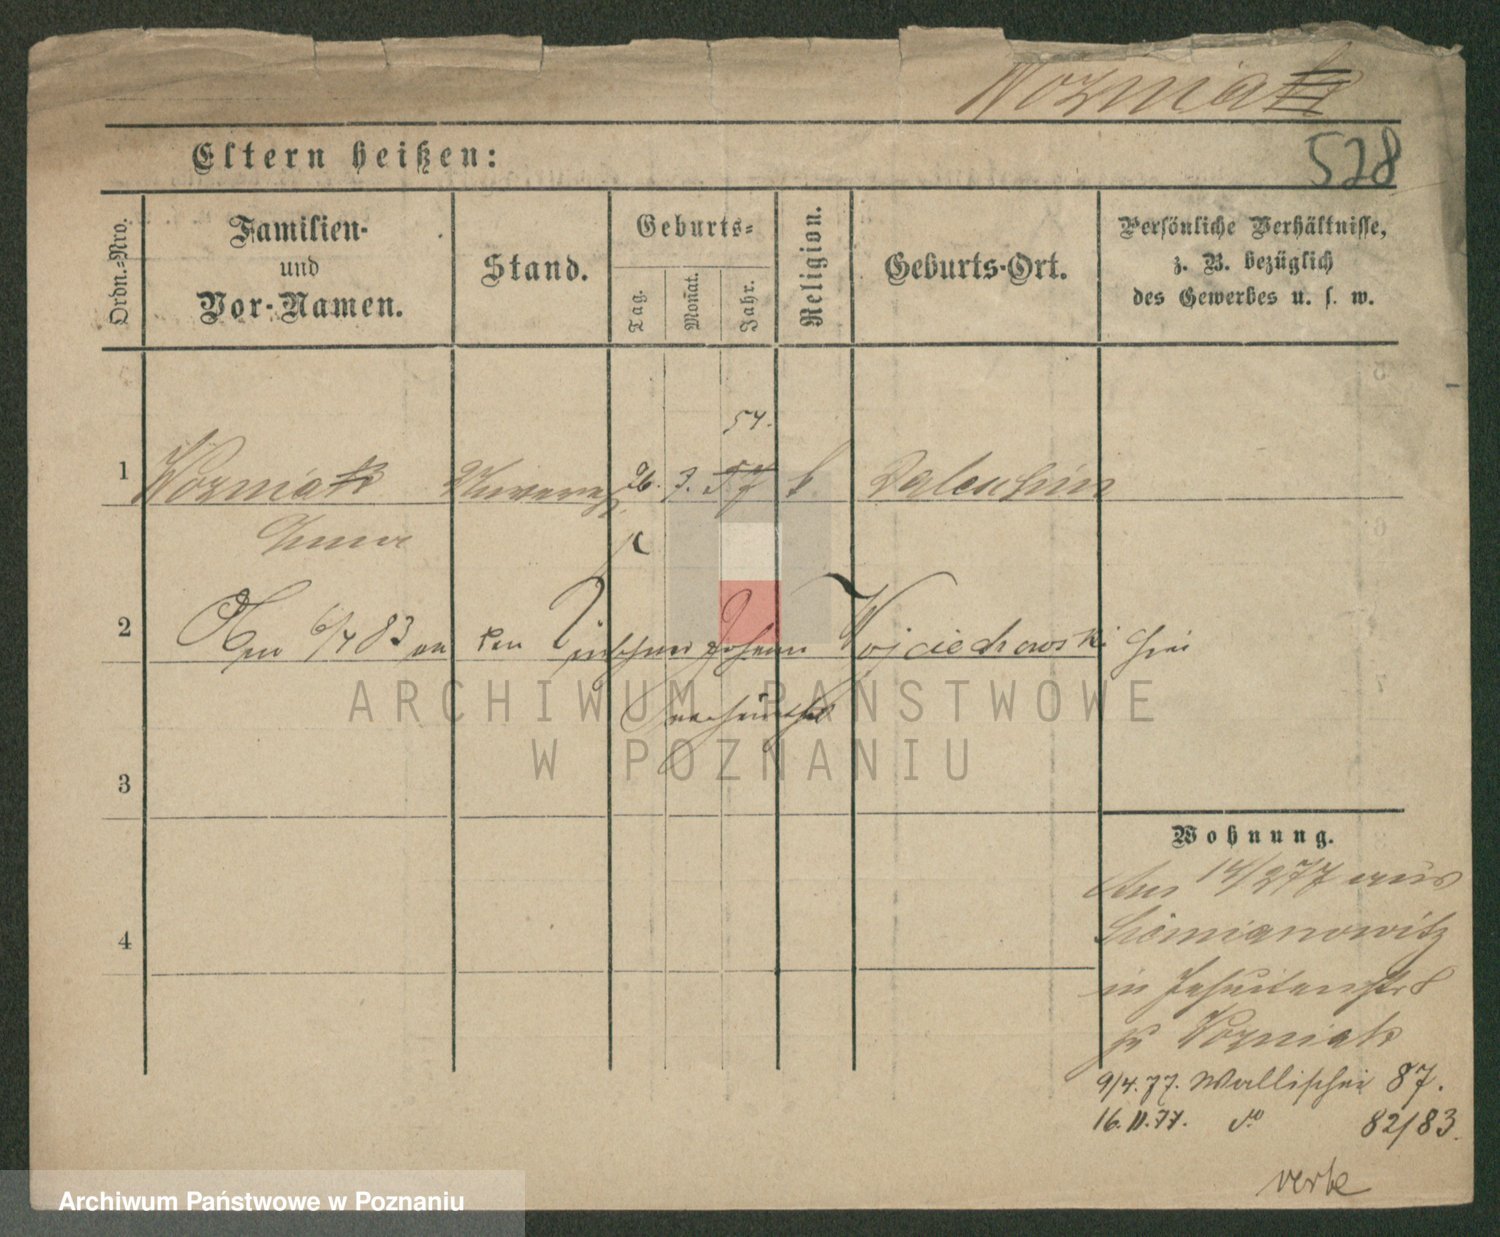 Wozniak
528
Eltern heißen:
Ordn.-Nro.
Familien-
und
Vor-Namen.
Stand.
Geburts-
Tag.
Monat.
Jahr.
Religion.
Geburts-Ort.
Persönliche Verhältnisse,
z. B. bezüglich
des Gewerbes u. s. w.
54.
1 Wozniak 26. 3. 57 k
2 6/4 83 an den Johann Wojciechowski
3
4
Wohnung.
Am 14/2 77 aus
in Jesuitenstr 8
Wozniak
9/4. 77. Wallischei 87.
16. 11. 77. do 82/83.
ARCHIWUM PAŃSTWOWE
W POZNANIU
Archiwum Państwowe w Poznaniu